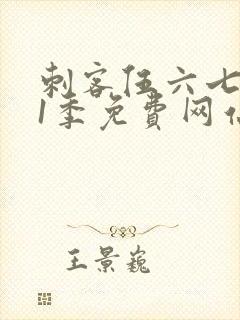 刺客伍六七
1季免费网
王景巍